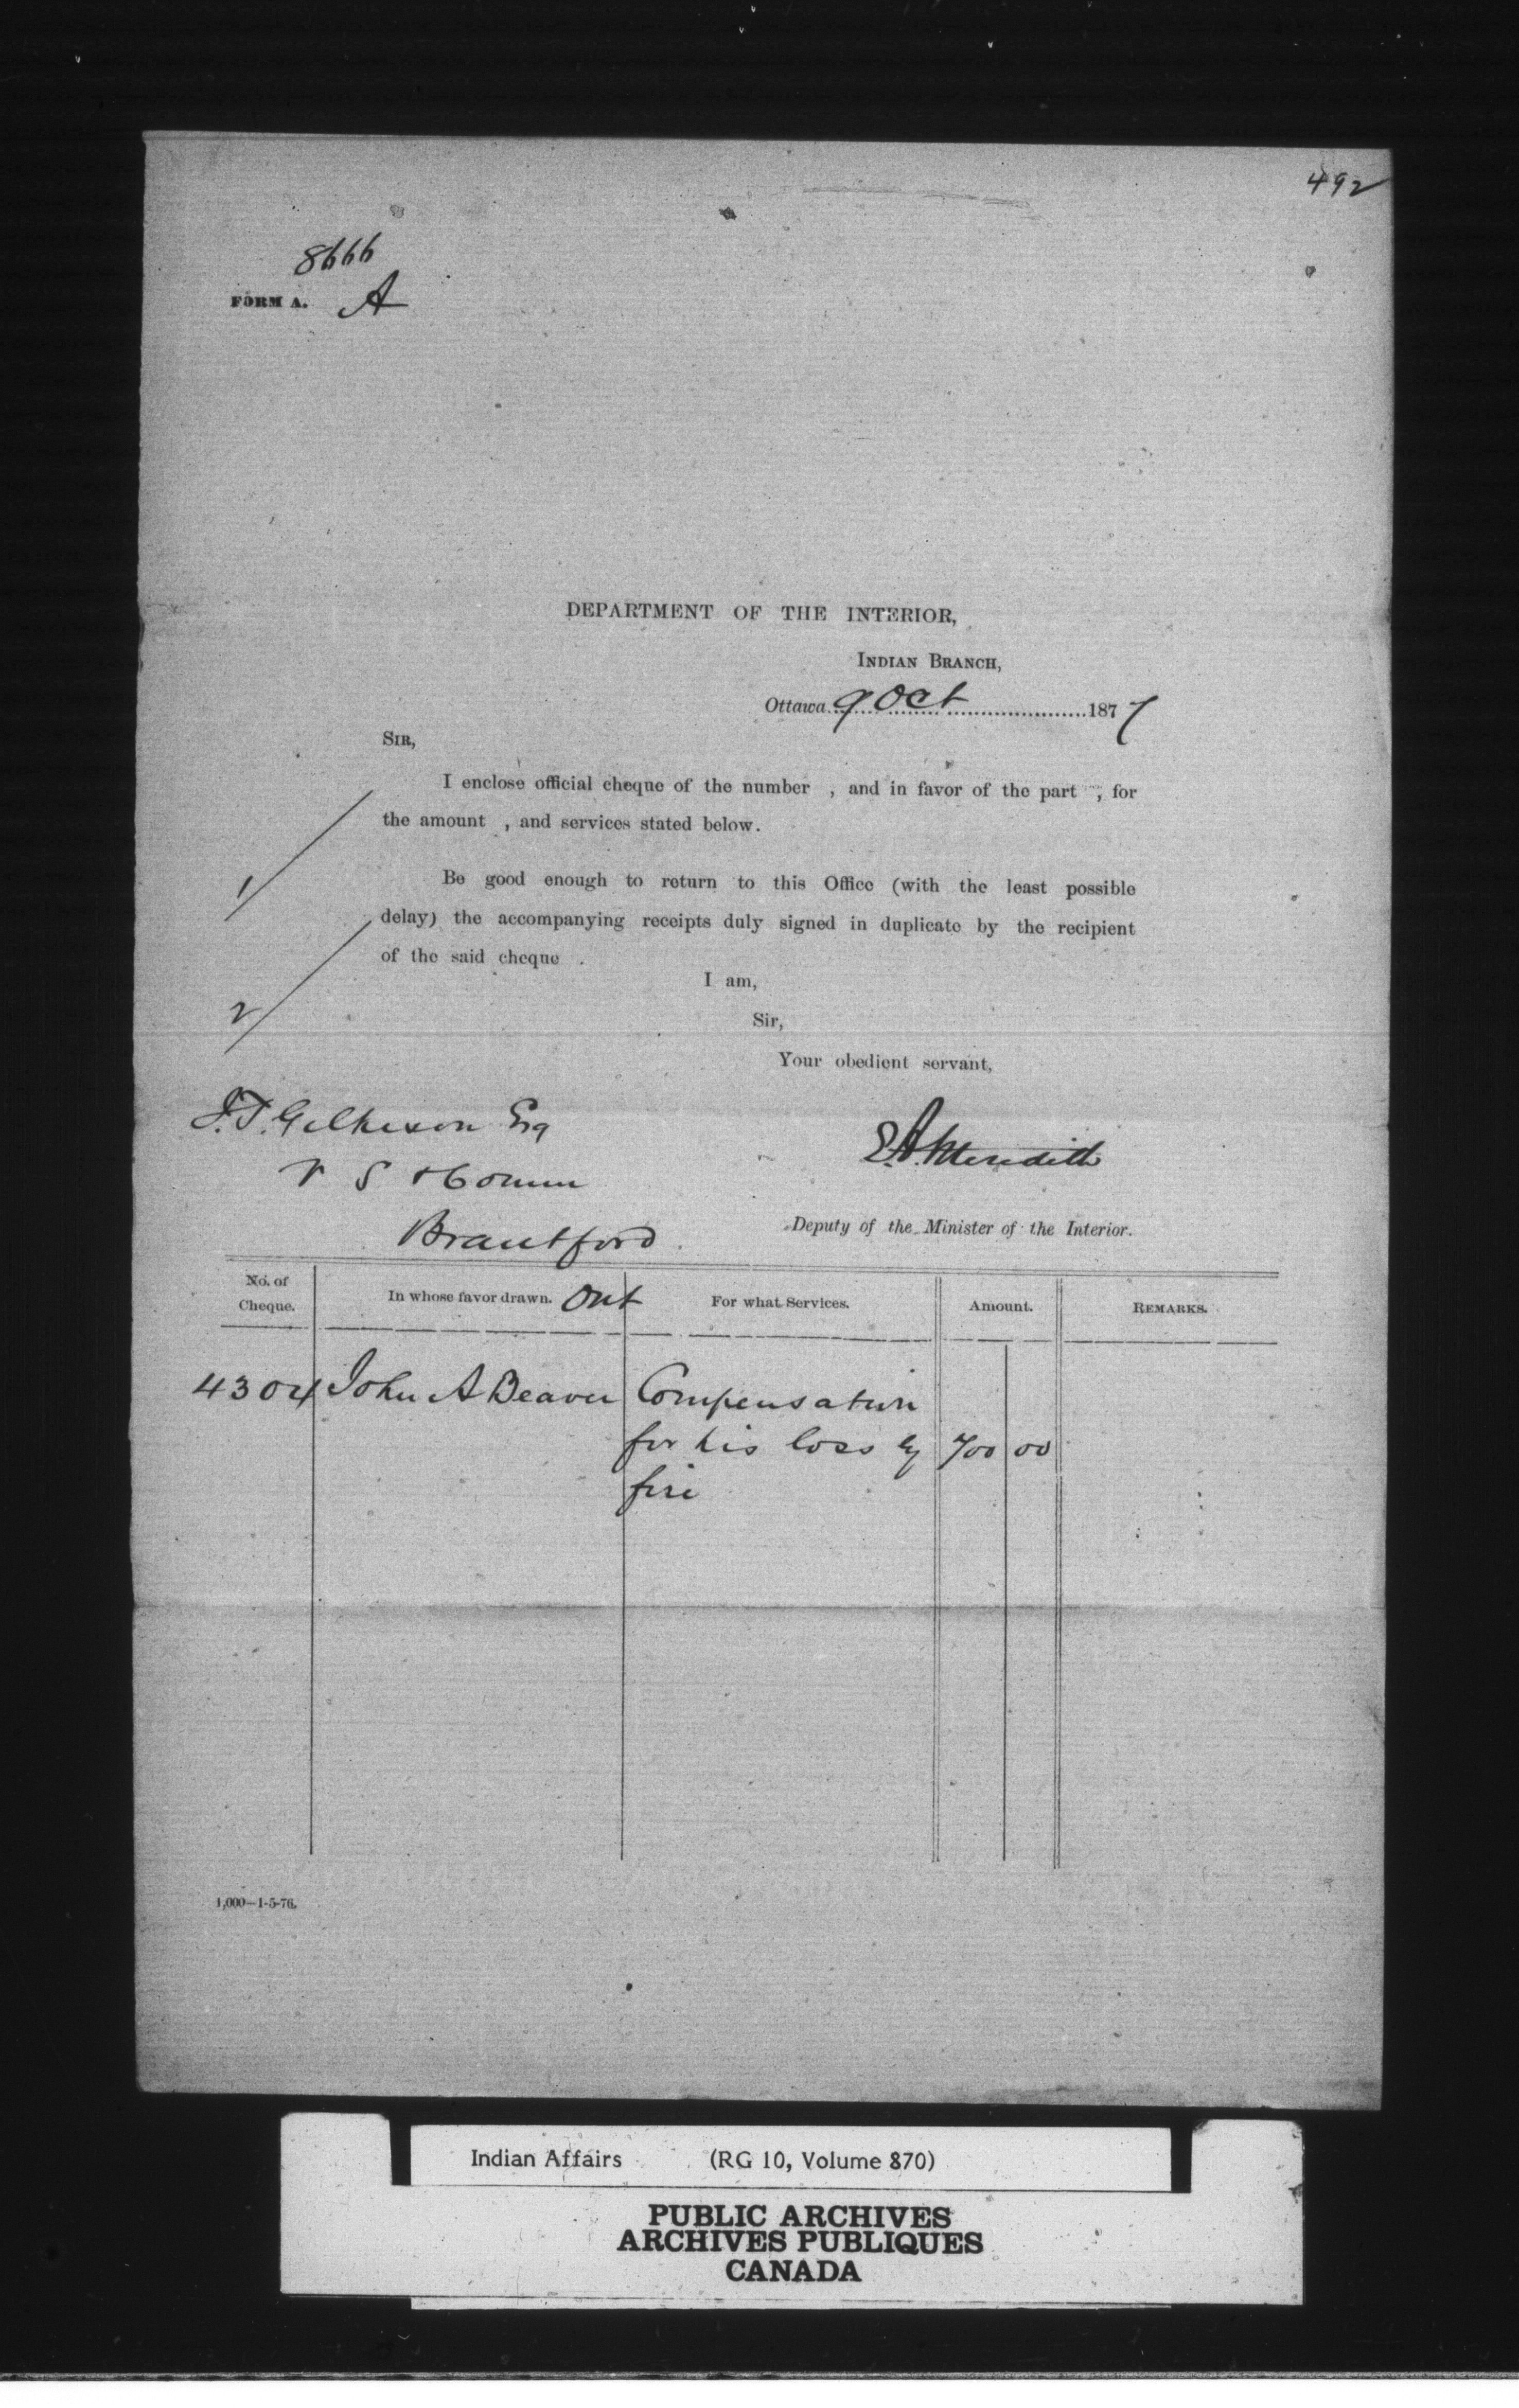 492
8666
FORM A. A
DEPARTMENT OF THE INTERIOR,
INDIAN BRANCH,
Ottawa 9 Oct 1877
SIR,
I enclose official cheque of the number , and in favor of the part , for
the amount , and services stated below.
1/
Be good enough to return to this Office (with the least possible
delay) the accompanying receipts duly signed in duplicate by the recipient
of the said cheque .
2/
I am,
Sir,
Your obedient servant,
J.T. Gilkison Esq
V S & Comm
Brantford
Ont
E.A. Meredith
Deputy of the Minister of the Interior.
No. of Cheque. In whose favor drawn. For what Services. Amount. REMARKS.
4304 John A Beaver Compensation
for his loss by 700 00
fire
1,000—1-5-76.
Indian Affairs (RG 10, Volume 870)
PUBLIC ARCHIVES
ARCHIVES PUBLIQUES
CANADA